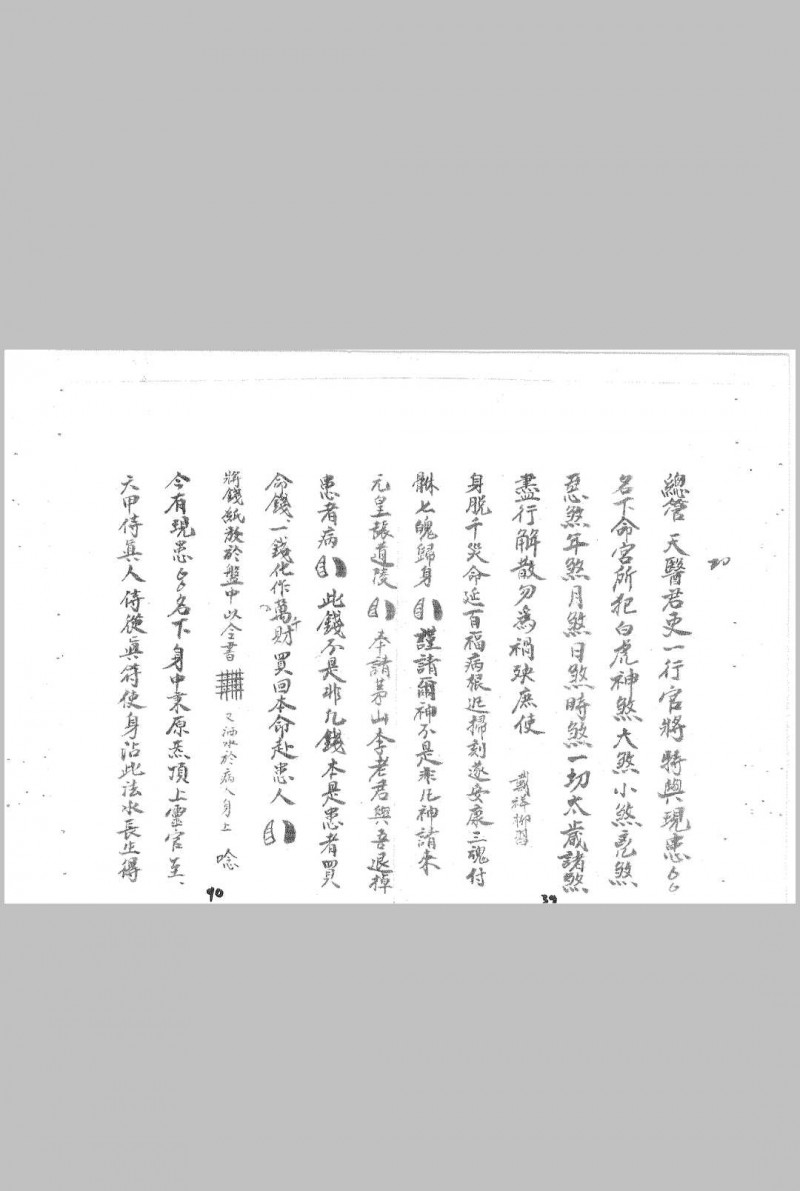 總管天醫君吏一行官將特與現患厶厶
名下命宮所犯白虎神煞大煞小煞
惡煞年煞月煞日煞時煞一切太歲諸煞
盡行解散勿為禍殃庶使
身脫千災命延百福病根迅掃刻遂安康三魂付
骵七魄歸身 謹請爾神不是非凡神請來
元皇張道陵 奉請茅山李老君與吾退掉
患者病 此錢不是非凡錢本是患者買
命錢一錢化作萬財買回本命赴患人
將錢紙放於盤中以令書 又洒水於病人身上 唸
今有現患厶厶名下身中秉原炁頂上靈官至
六甲侍眞人侍從眞符使身沾此法水長生得
39
40